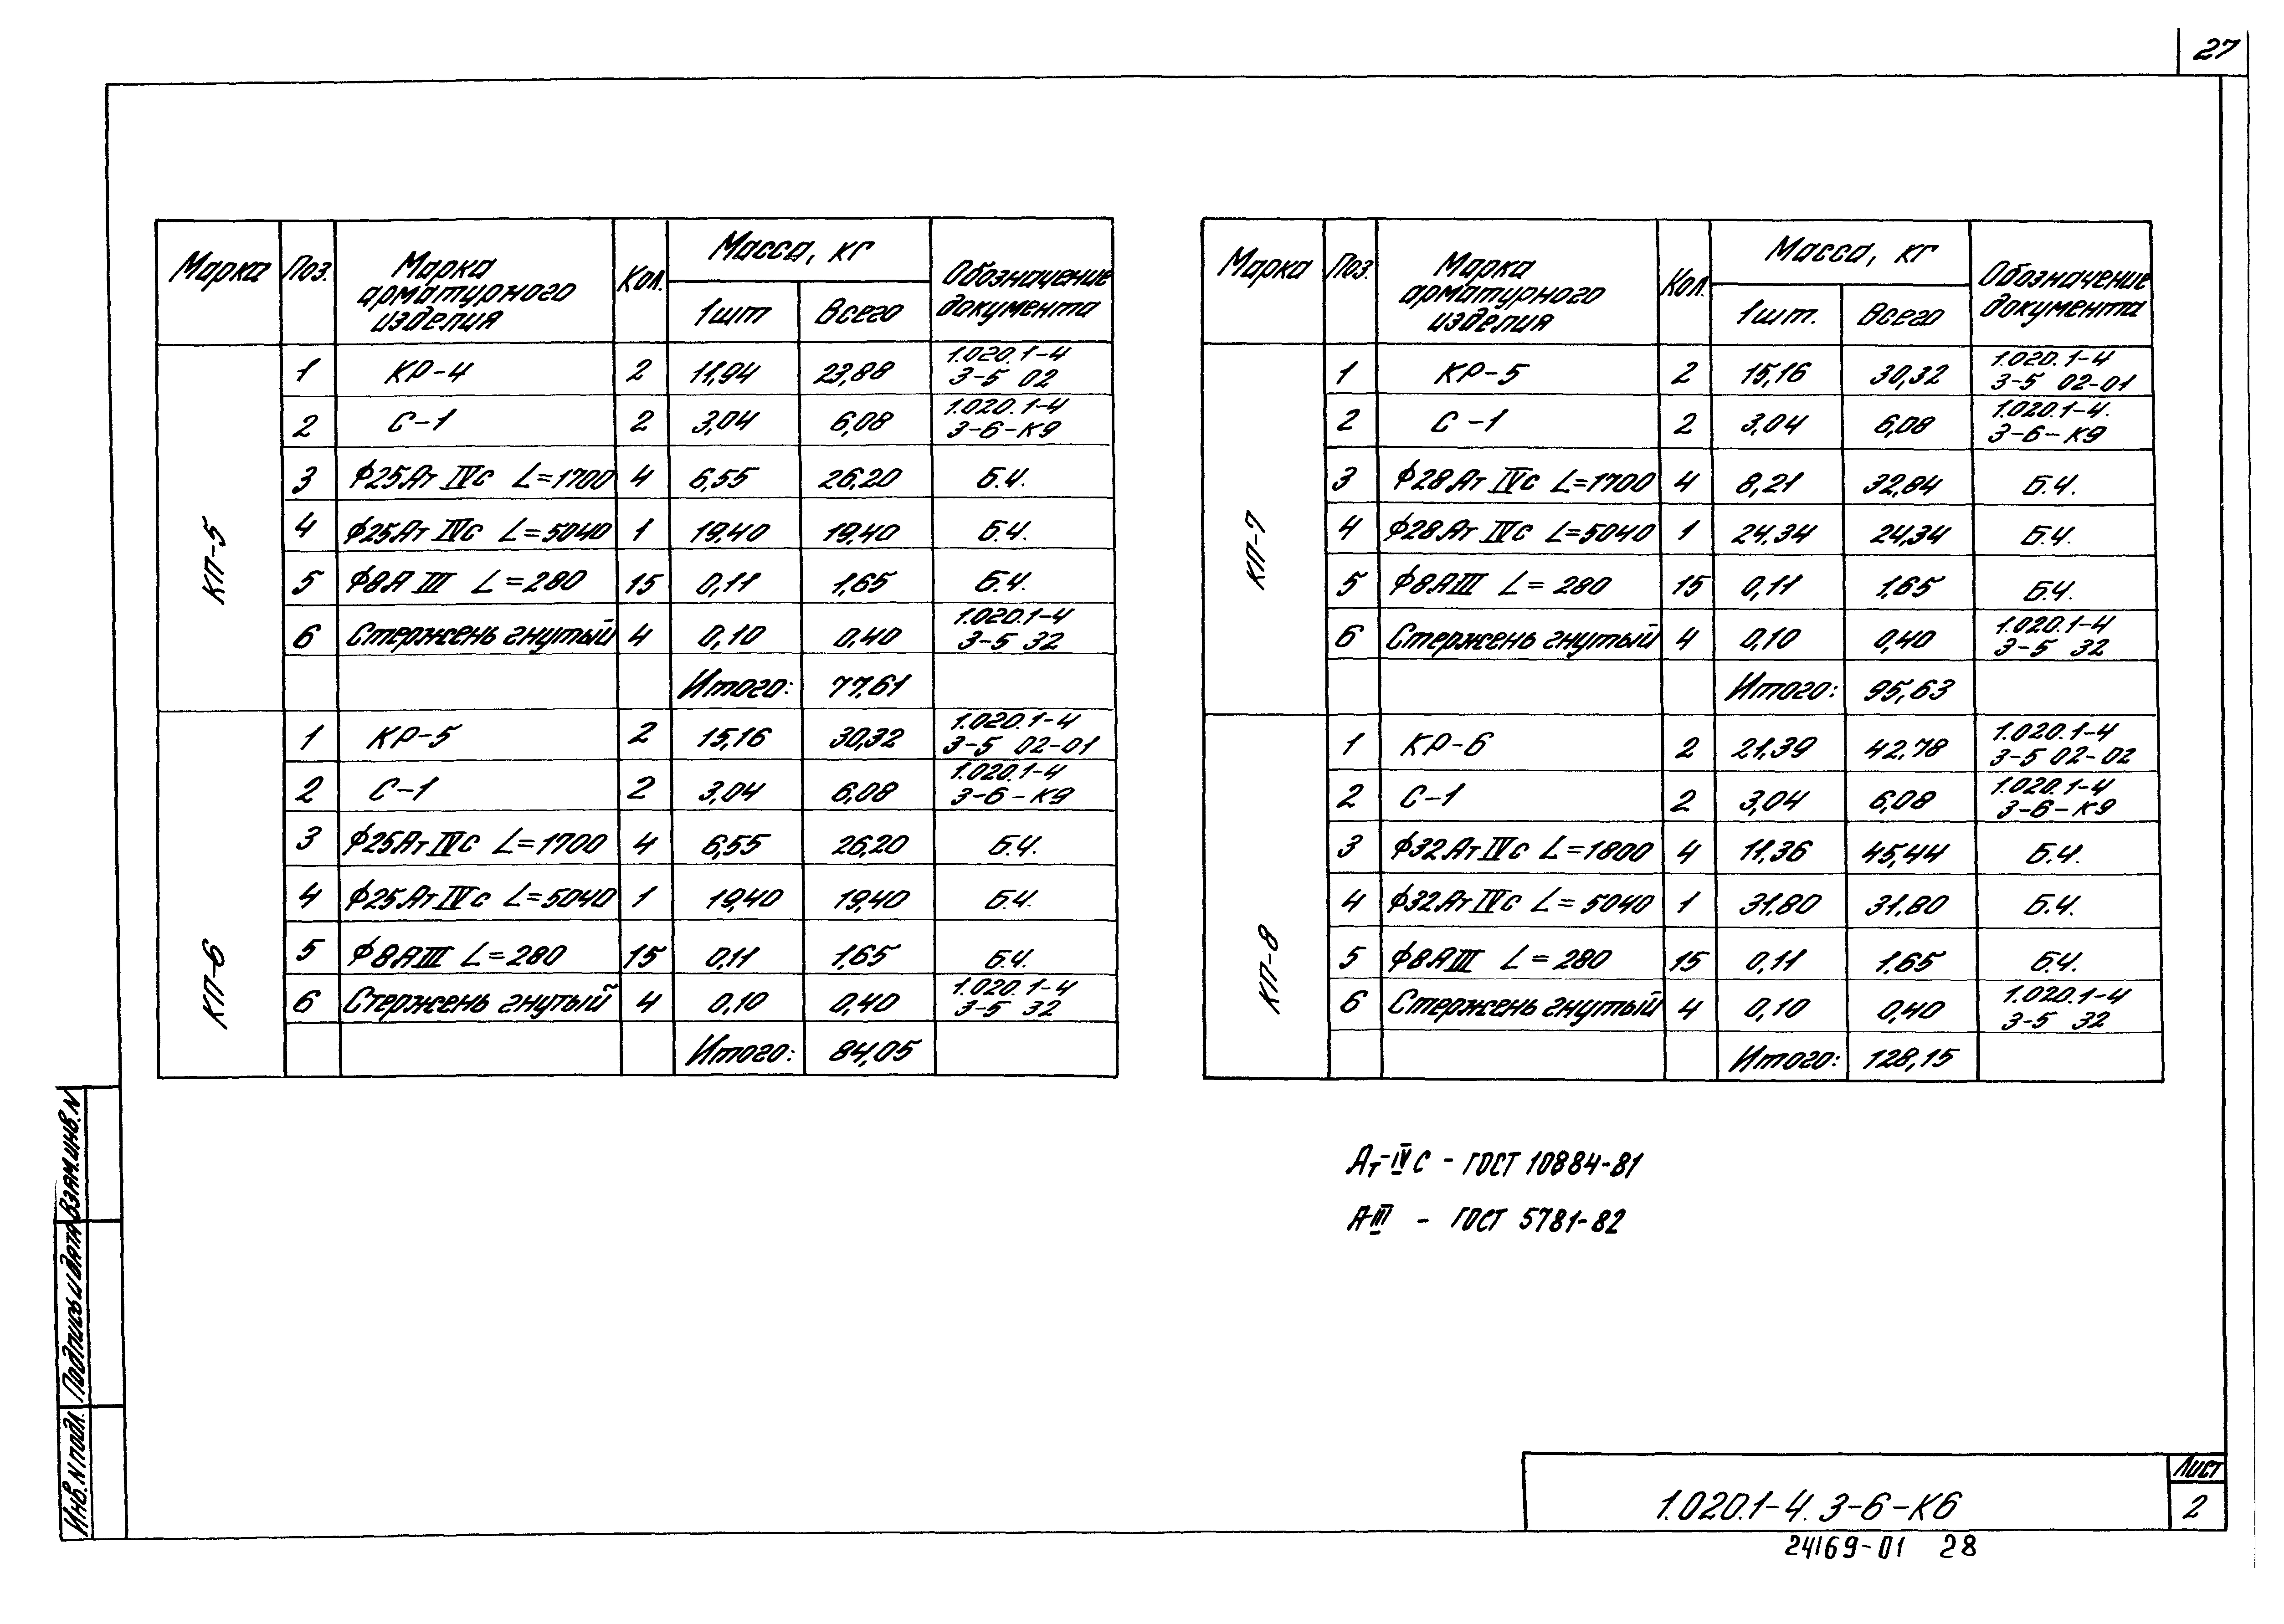 27
Марка Поз. Марка арматурного изделия Кол. Масса, кг Обозначение документа
1шт Всего
КП-5
1 КР-4 2 11,94 23,88 1.020.1-4 3-5 02
2 С-1 2 3,04 6,08 1.020.1-4 3-6-К9
3 ϕ25Ат IVс L=1700 4 6,55 26,20 Б.Ч.
4 ϕ25Ат IVс L=5040 1 19,40 19,40 Б.Ч.
5 ϕ8А III L=280 15 0,11 1,65 Б.Ч.
6 Стержень гнутый 4 0,10 0,40 1.020.1-4 3-5 32
Итого: 77,61
КП-6
1 КР-5 2 15,16 30,32 1.020.1-4 3-5 02-01
2 С-1 2 3,04 6,08 1.020.1-4 3-6-К9
3 ϕ25Ат IVс L=1700 4 6,55 26,20 Б.Ч.
4 ϕ25Ат IVс L=5040 1 19,40 19,40 Б.Ч.
5 ϕ8АIII L=280 15 0,11 1,65 Б.Ч.
6 Стержень гнутый 4 0,10 0,40 1.020.1-4 3-5 32
Итого: 84,05
Марка Поз. Марка арматурного изделия Кол. Масса, кг Обозначение документа
1шт. Всего
КП-7
1 КР-5 2 15,16 30,32 1.020.1-4 3-5 02-01
2 С-1 2 3,04 6,08 1.020.1-4. 3-6-К9
3 ϕ28Ат IVс L=1700 4 8,21 32,84 Б.Ч.
4 ϕ28Ат IVс L=5040 1 24,34 24,34 Б.Ч.
5 ϕ8АIII L=280 15 0,11 1,65 Б.Ч.
6 Стержень гнутый 4 0,10 0,40 1.020.1-4 3-5 32
Итого: 95,63
КП-8
1 КР-6 2 21,39 42,78 1.020.1-4 3-5 02-02
2 С-1 2 3,04 6,08 1.020.1-4 3-6-К9
3 ϕ32Ат IVс L=1800 4 11,36 45,44 Б.Ч.
4 ϕ32Ат IVс L=5040 1 31,80 31,80 Б.Ч.
5 ϕ8АIII L=280 15 0,11 1,65 Б.Ч.
6 Стержень гнутый 4 0,10 0,40 1.020.1-4 3-5 32
Итого: 128,15
Ат-IVС - ГОСТ 10884-81
А-III - ГОСТ 5781-82
Инв. N подл. Подпись и дата Взам. инв. N
1.020.1-4. 3-6-К6
Лист
2
24169-01 28